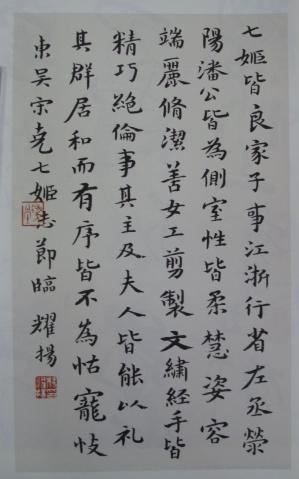 七姬皆良家子事江浙行省左丞滎
陽潘公皆為側室性皆柔慧姿容
端麗脩潔善女工剪製文繡經手皆
精巧絕倫事其主及夫人皆能以礼
其群居和而有序皆不為怙寵忮
東吴宗尭七姬志節臨 耀揚